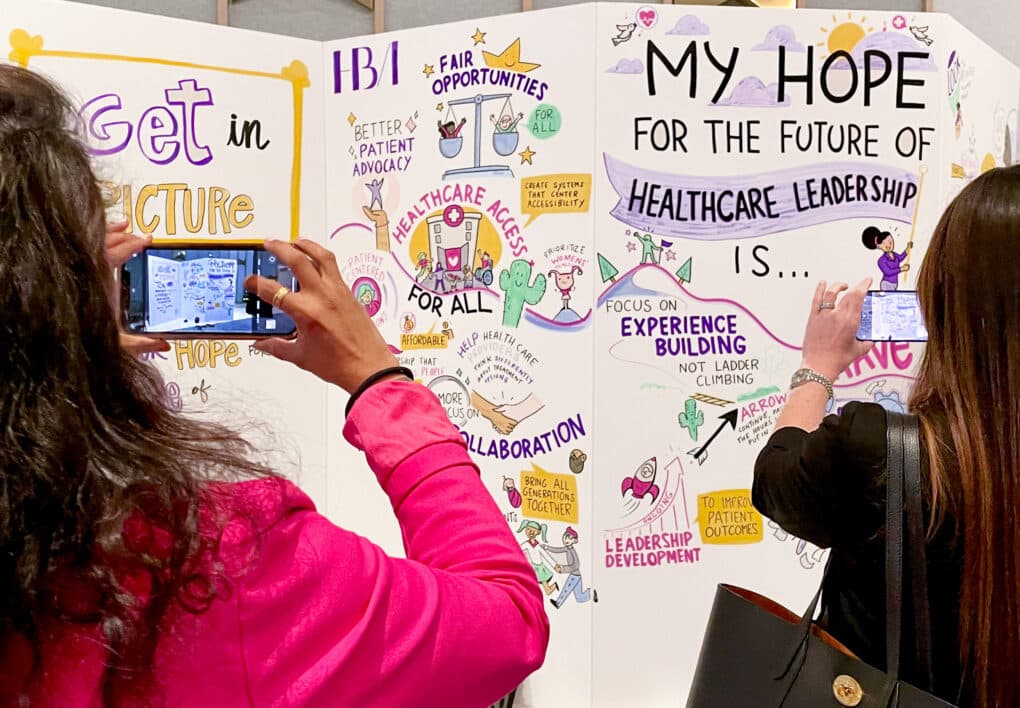 Get in
PICTURE
HOPE
of
HBA
FAIR
OPPORTUNITIES
FOR
ALL
BETTER
PATIENT
ADVOCACY
CREATE SYSTEMS
THAT CENTER
ACCESSIBILITY
HEALTHCARE ACCESS
FOR ALL
PATIENT
PRIORITIZE
WOMEN'S
AFFORDABLE
THAT
PEOPLE
HELP HEALTH CARE
PROVIDERS
THINK DIFFERENTLY
ABOUT TREATMENT
OPTIONS
MORE
ON
COLLABORATION
BRING ALL
GENERATIONS
TOGETHER
MY HOPE
FOR THE FUTURE OF
HEALTHCARE LEADERSHIP
IS...
FOCUS ON
EXPERIENCE
BUILDING
NOT LADDER
CLIMBING
ARROW
CONTINUE
THE HOURS
PUT IN
ONGOING
LEADERSHIP
DEVELOPMENT
TO IMPROVE
PATIENT
OUTCOMES